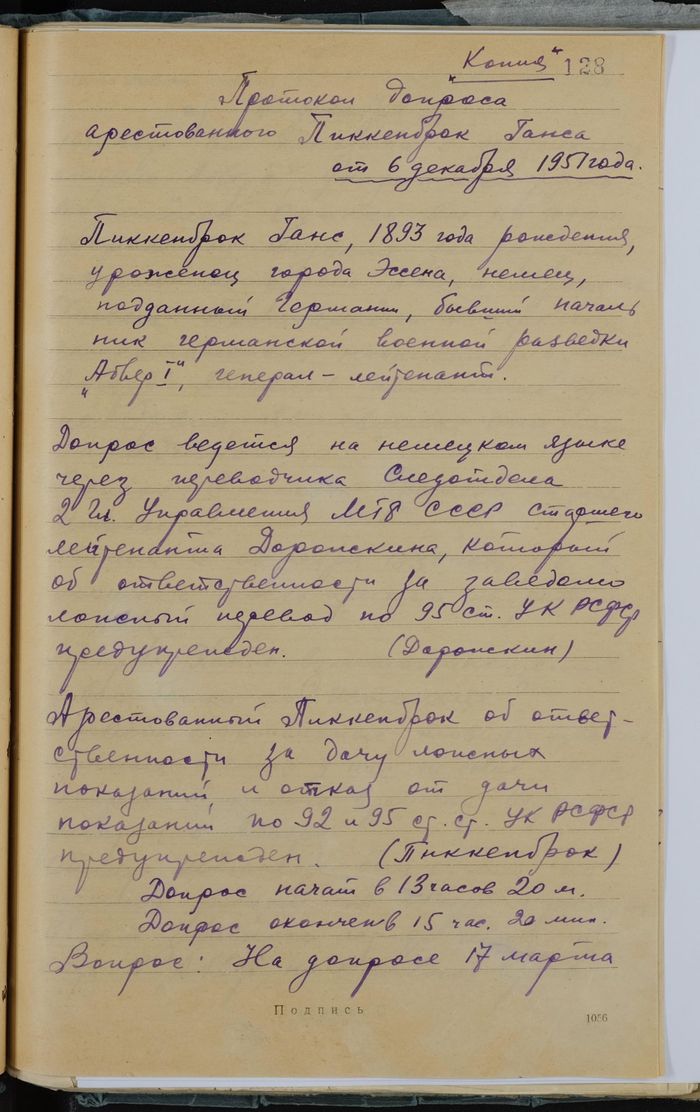 "Копия" 128
Протокол допроса
арестованного Пиккенброк Ганса
от 6 декабря 1951 года.
Пиккенброк Ганс, 1893 года рождения,
уроженец города Эссена, немец,
подданный Германии, бывший началь
ник германской военной разведки
"Абвер I", генерал-лейтенант.
Допрос ведется на немецком языке
через переводчика Следотдела
2 Гл. Управления МГБ СССР старшего
лейтенанта Дорожкина, который
об ответственности за заведомо
ложный перевод по 95 ст. УК РСФСР
предупрежден. (Дорожкин)
Арестованный Пиккенброк об ответ-
ственности за дачу ложных
показаний и отказ от дачи
показаний по 92 и 95 ст.ст. УК РСФСР
предупрежден. (Пиккенброк)
Допрос начат в 13 часов 20 м.
Допрос окончен в 15 час. 20 мин.
Вопрос: На допросе 17 марта
Подпись
1056